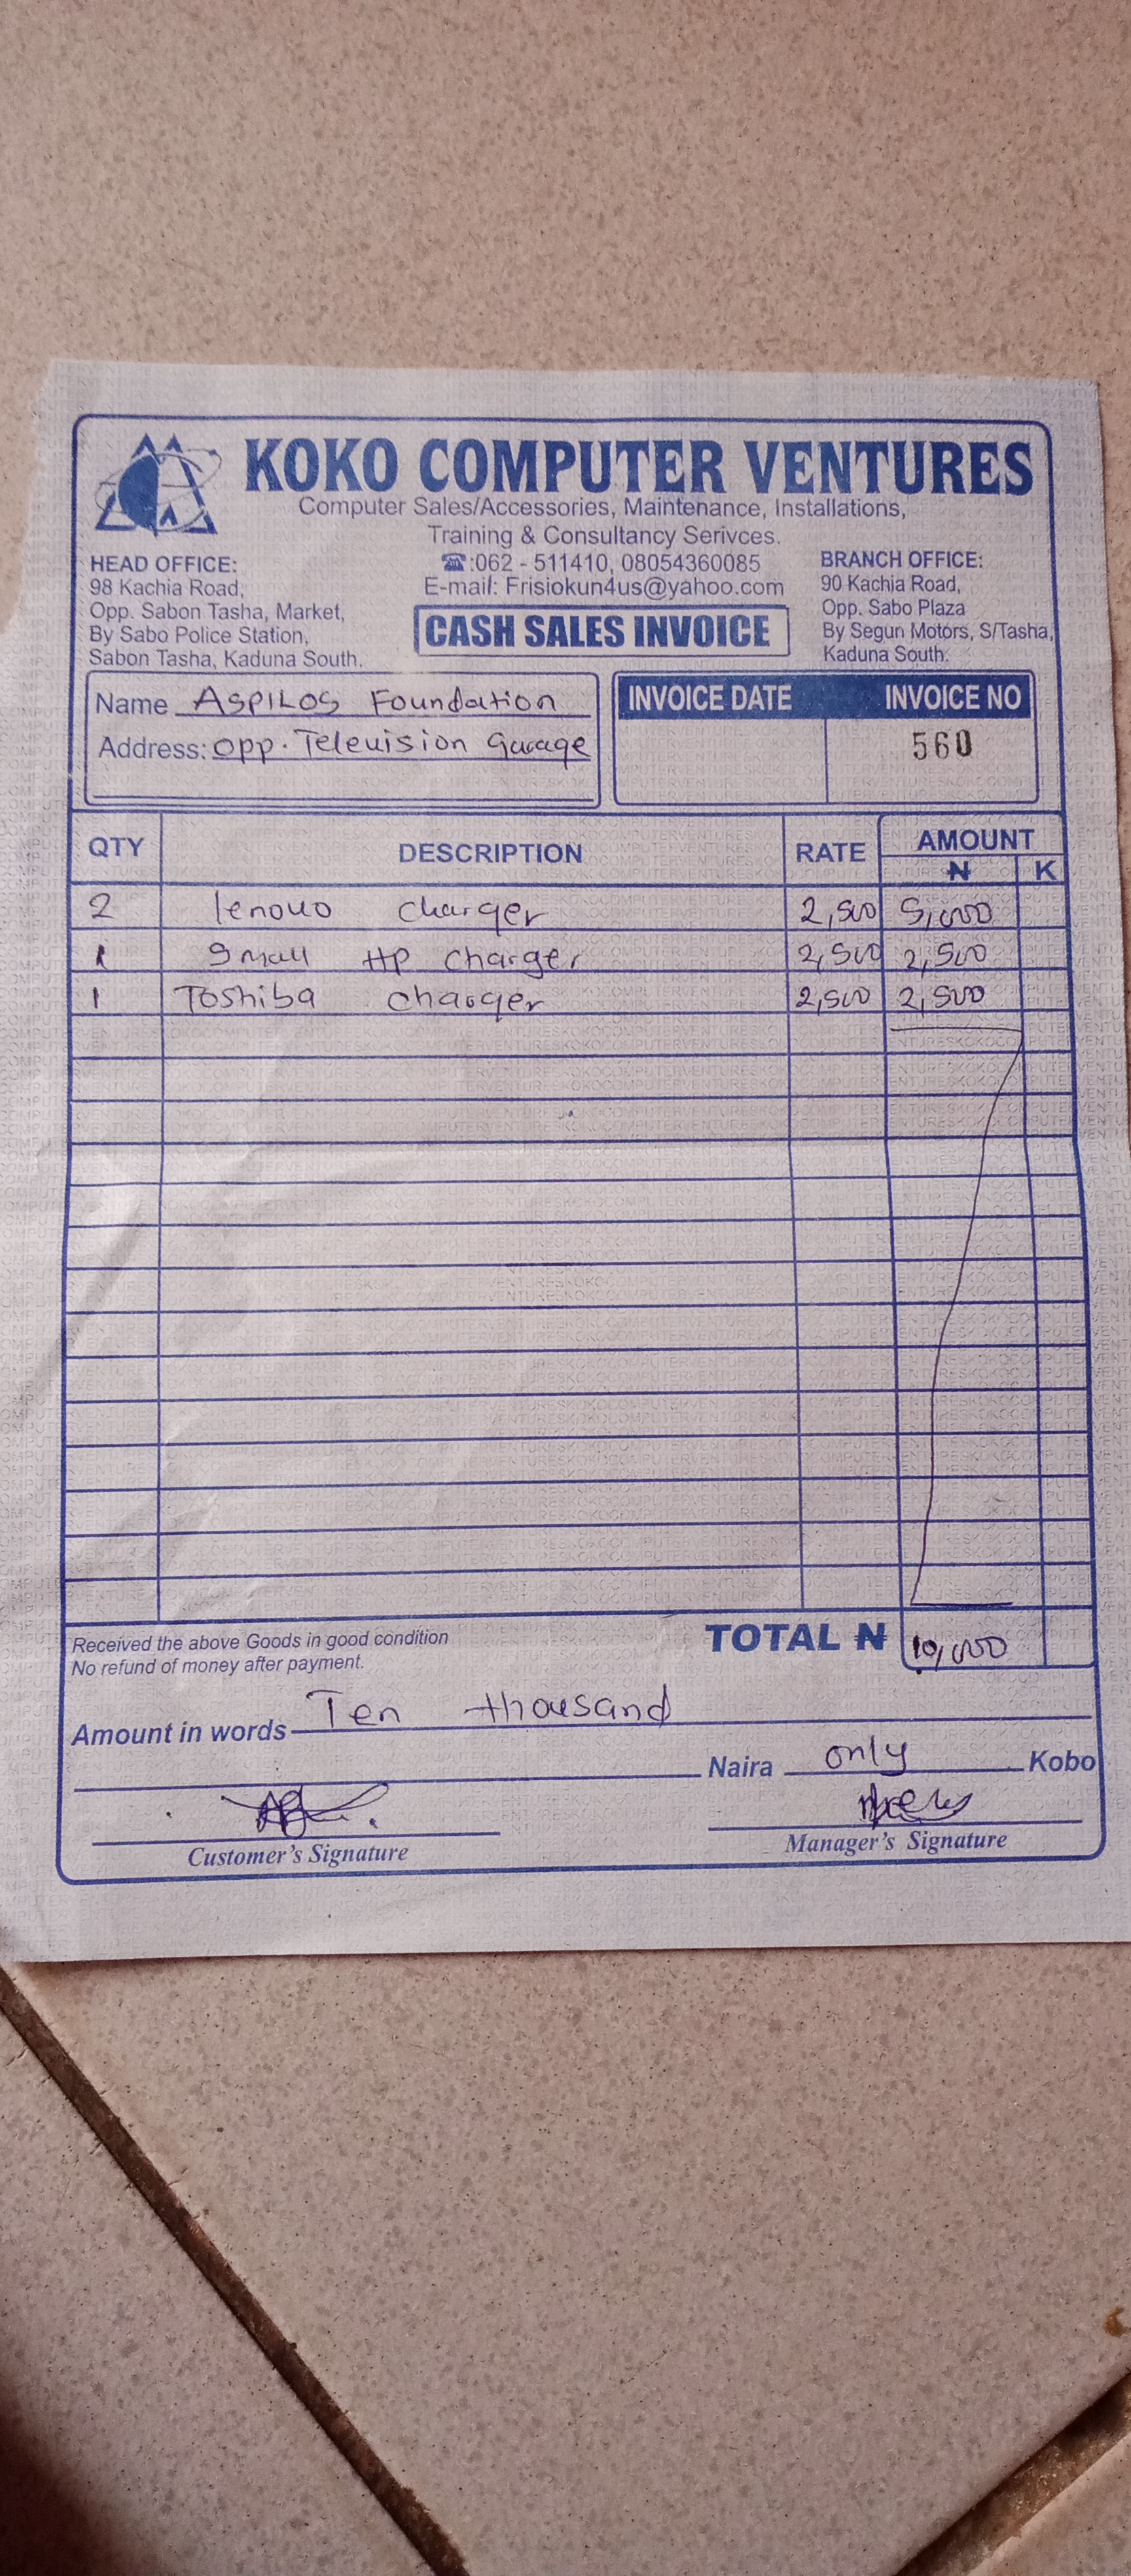 KOKO COMPUTER VENTURES
Computer Sales/Accessories, Maintenance, Installations,
Training & Consultancy Serivces.
☎:062 - 511410, 08054360085
E-mail: Frisiokun4us@yahoo.com
HEAD OFFICE:
98 Kachia Road,
Opp. Sabon Tasha, Market,
By Sabo Police Station,
Sabon Tasha, Kaduna South.
BRANCH OFFICE:
90 Kachia Road,
Opp. Sabo Plaza
By Segun Motors, S/Tasha,
Kaduna South.
CASH SALES INVOICE
Name ASPILOS Foundation
Address: opp. Television Garage
INVOICE DATE INVOICE NO
560
QTY DESCRIPTION RATE AMOUNT
₦ K
2 lenovo charger 2,500 5,000
1 Small HP charger 2,500 2,500
1 Toshiba charger 2,500 2,500
Received the above Goods in good condition
No refund of money after payment.
TOTAL ₦ 10,000
Amount in words Ten thousand
Naira only Kobo
Customer's Signature Manager's Signature